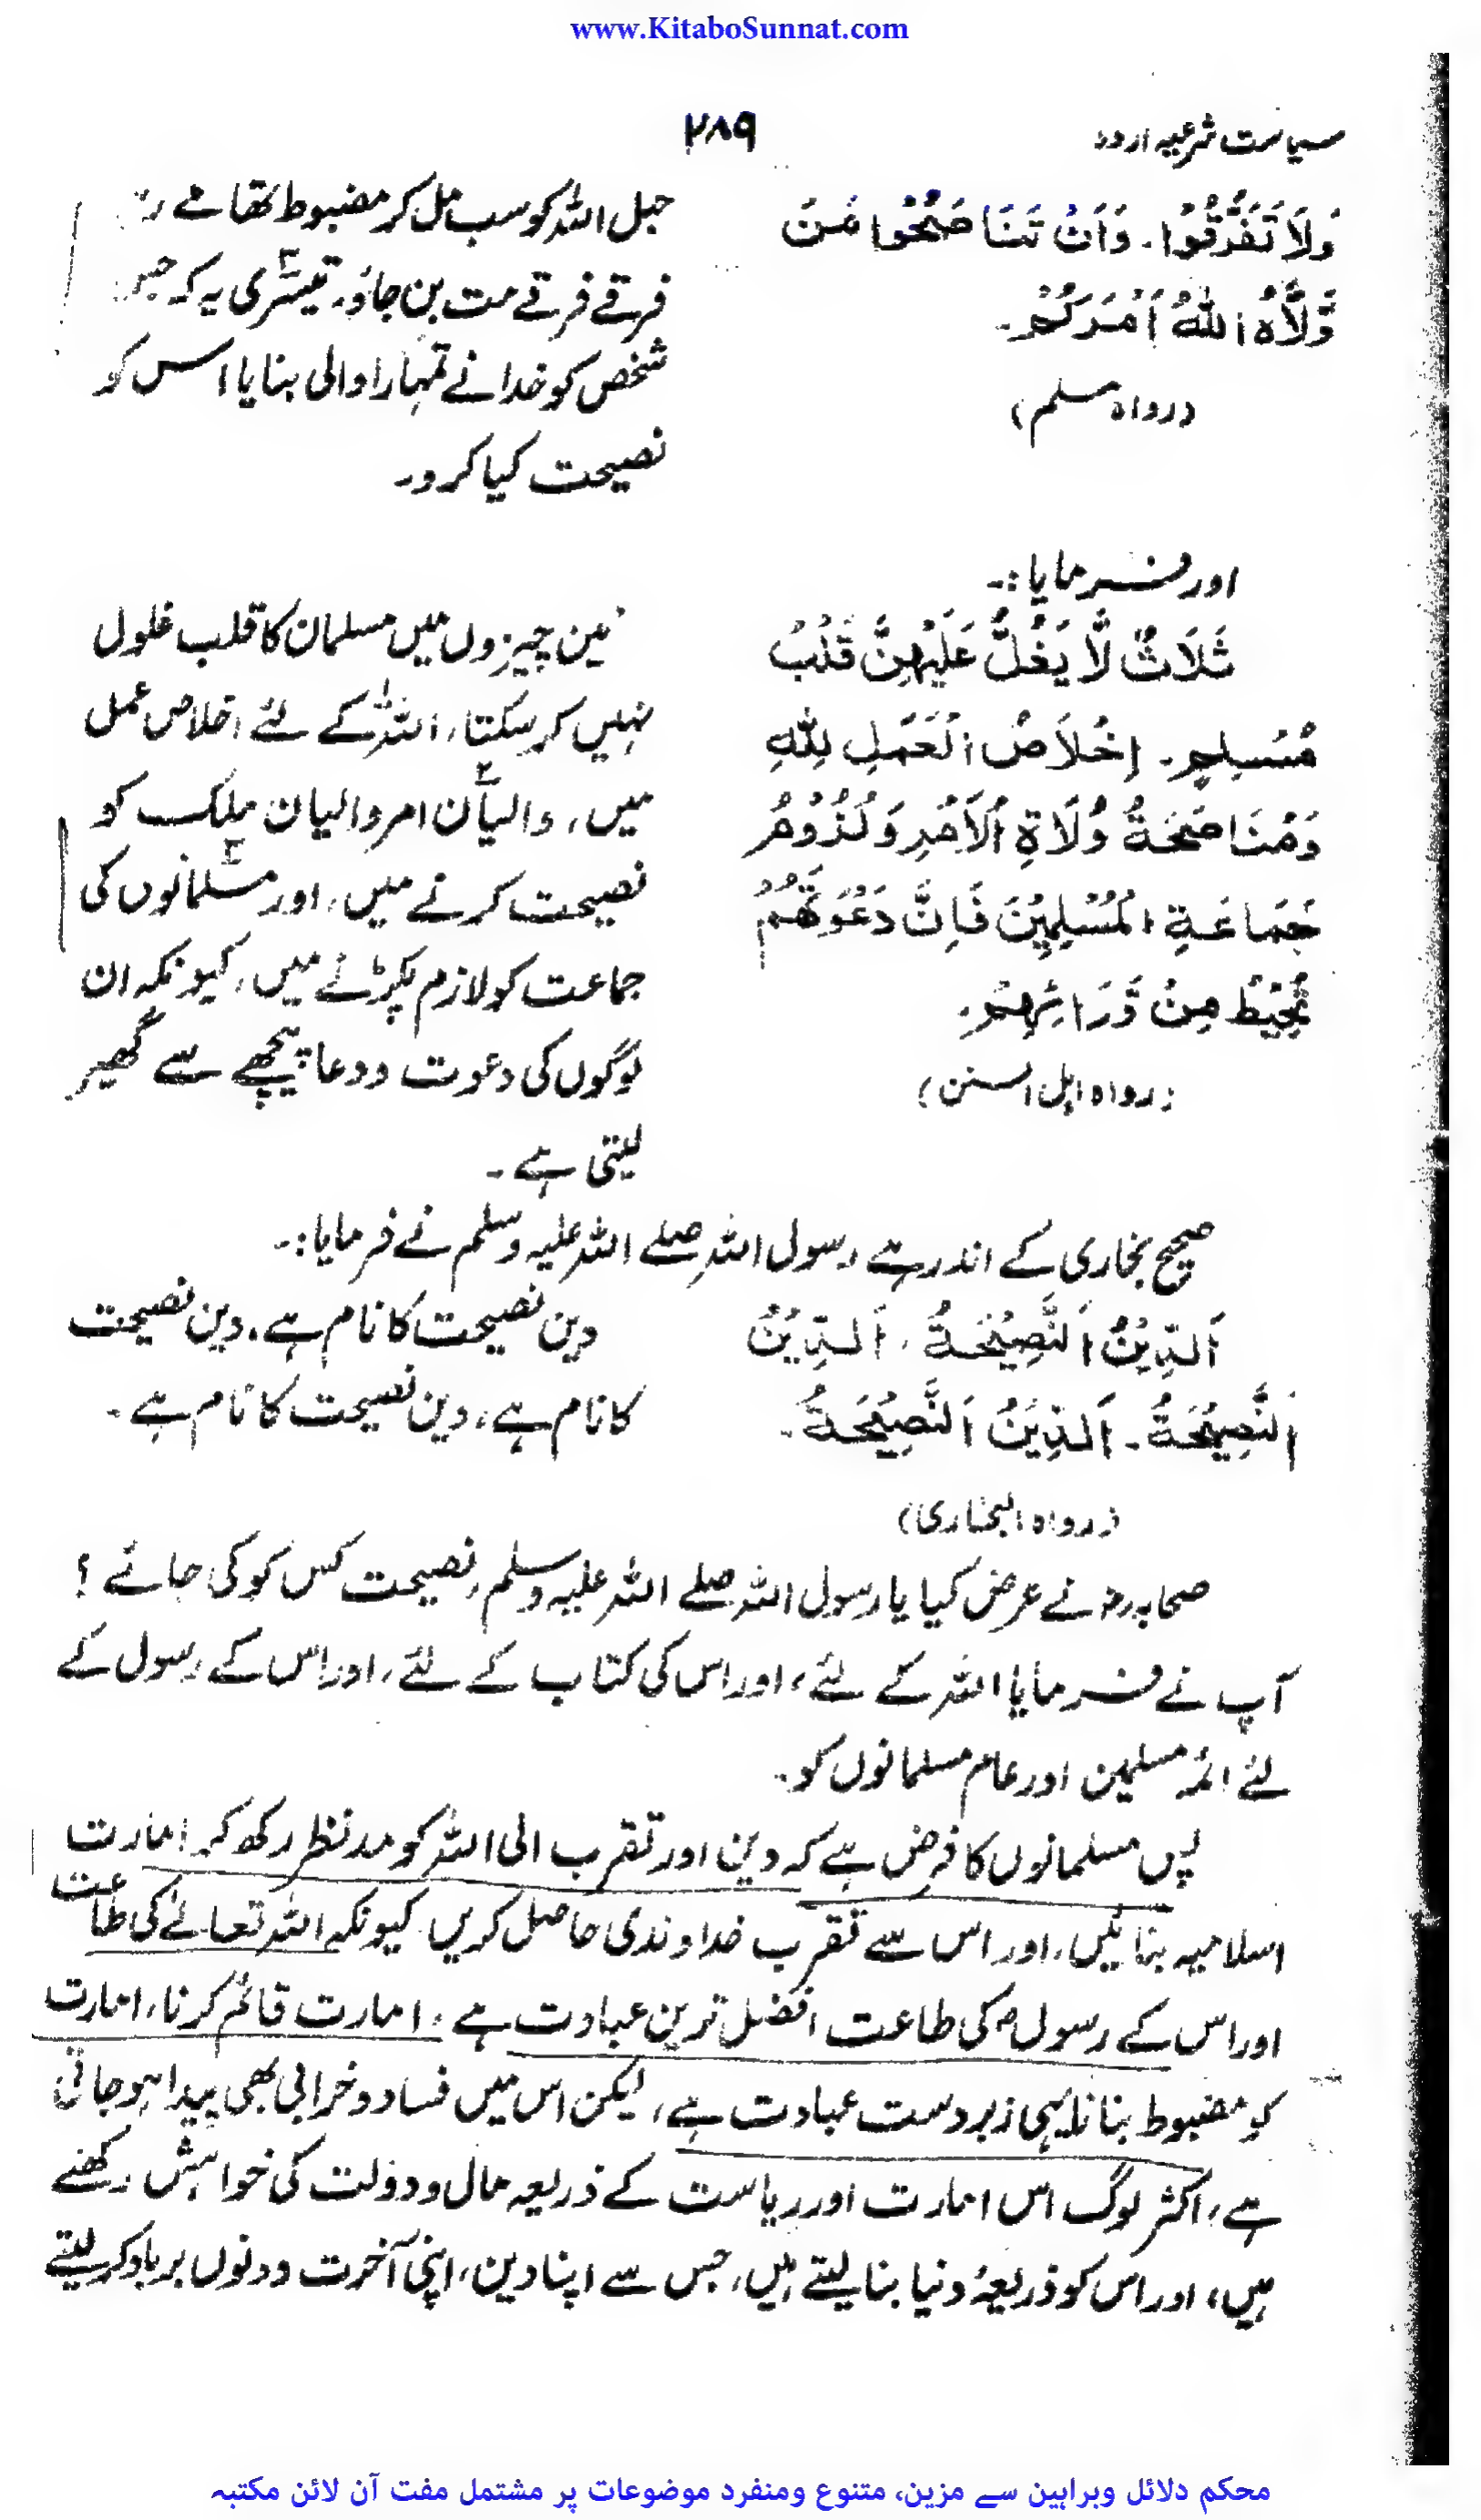 www.KitaboSunnat.com
سیاست شرعیہ اردو
۲۸۹
وَلَا تَفَرَّقُوْا۔ وَاَنْ تَنَاصَحُوْا مَنْ
وَّلَّاہُ اللّٰہُ اَمْرَکُمْ۔
(رواہ مسلم)
حبل اللہ کو سب مل کر مضبوط تھامے
فرقے فرقے مت بن جاؤ۔ تیسری یہ کہ جس
شخص کو خدا نے تمہارا والی بنایا اس کو
نصیحت کیا کرو۔
اور فرمایا:۔
ثَلَاثٌ لَّا یَغُلُّ عَلَیْہِنَّ قَلْبُ
مُسْلِمٍ۔ اِخْلَاصُ الْعَمَلِ لِلّٰہِ
وَمُنَاصَحَۃُ وُلَاۃِ الْاَمْرِ وَلُزُوْمُ
جَمَاعَۃِ الْمُسْلِمِیْنَ فَاِنَّ دَعْوَتَھُمْ
تُحِیْطُ مِنْ وَّرَائِہِمْ۔
(رواہ اہل السنن)
تین چیزوں میں مسلمان کا قلب غلول
نہیں کر سکتا، اللہ کے لئے اخلاص عمل
میں، والیان امر والیان ملک کو
نصیحت کرنے میں، اور مسلمانوں کی
جماعت کو لازم پکڑنے میں، کیونکہ ان
لوگوں کی دعوت و دعا پیچھے سے گھیر
لیتی ہے۔
صحیح بخاری کے اندر ہے رسول اللہ صلے اللہ علیہ وسلم نے فرمایا:۔
اَلدِّیْنُ اَلنَّصِیْحَۃُ، اَلدِّیْنُ
اَلنَّصِیْحَۃُ۔ اَلدِّیْنُ اَلنَّصِیْحَۃُ۔
(رواہ البخاری)
دین نصیحت کا نام ہے، دین نصیحت
کا نام ہے، دین نصیحت کا نام ہے۔
صحابہ رض نے عرض کیا یا رسول اللہ صلے اللہ علیہ وسلم، نصیحت کس کو کی جائے ؟
آپ نے فرمایا اللہ کے لئے، اور اس کی کتاب کے لئے، اور اس کے رسول کے
لئے ائمہ مسلمین اور عام مسلمانوں کو۔
پس مسلمانوں کا فرض ہے کہ دین اور تقرب الی اللہ کو مدنظر رکھ کر امارت
اسلامیہ بنائیں، اور اس سے تقرب خداوندی حاصل کریں کیونکہ اللہ تعالےٰ کی طاعت
اور اس کے رسولؐ کی طاعت افضل ترین عبادت ہے، امارت قائم کرنا، امارت
کو مضبوط بنانا یہی زبردست عبادت ہے، لیکن اس میں فساد و خرابی بھی پیدا ہو جاتی
ہے، اکثر لوگ اس امارت اور ریاست کے ذریعہ مال و دولت کی خواہش رکھتے
ہیں، اور اس کو ذریعۂ دنیا بنا لیتے ہیں، جس سے اپنا دین، اپنی آخرت دونوں برباد کر لیتے
محکم دلائل وبراہین سے مزین، متنوع ومنفرد موضوعات پر مشتمل مفت آن لائن مکتبہ